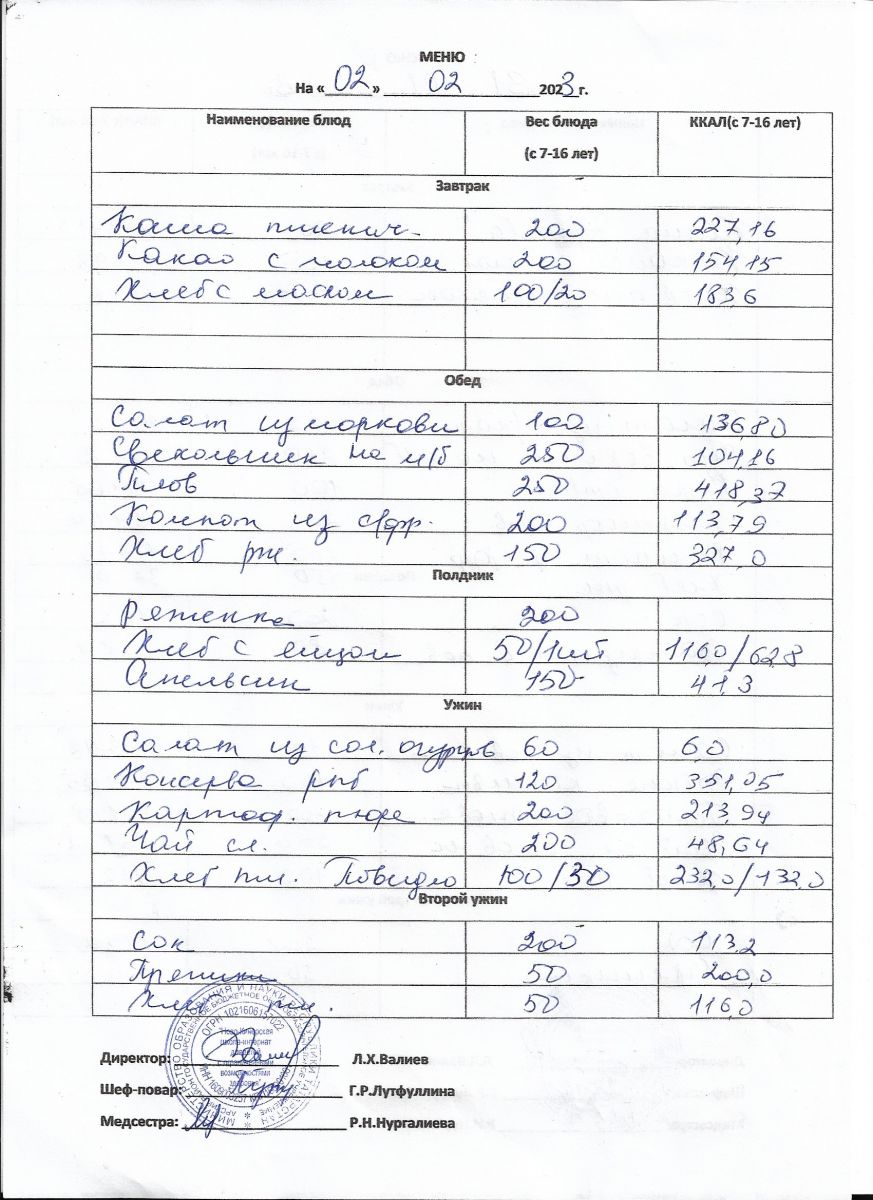 МЕНЮ
На «02» 02 2023г.
Наименование блюд Вес блюда (с 7-16 лет) ККАЛ(с 7-16 лет)
Завтрак
Каша пшенич. 200 227,16
Какао с молоком 200 154,15
Хлеб с маслом 100/20 183,6
Обед
Салат из моркови 100 136,80
Свекольник на м/б 250 104,16
Плов 250 418,37
Компот из с/фр. 200 113,79
Хлеб рж. 150 327,0
Полдник
Ряженка 200
Хлеб с яйцом 50/1шт 116,0/62,8
Апельсин 150 41,3
Ужин
Салат из сол. огурцов 60 6,0
Консерва рыб 120 351,05
Картоф. пюре 200 213,94
Чай сл. 200 48,64
Хлеб пш. Повидло 100/30 232,0/132,0
Второй ужин
Сок 200 113,2
Пряники 50 200,0
Хлеб 50 116,0
Директор: Л.Х.Валиев
Шеф-повар: Г.Р.Лутфуллина
Медсестра: Р.Н.Нургалиева